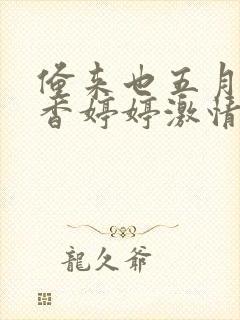 偓来也五月
香婷婷激情
龍久爷